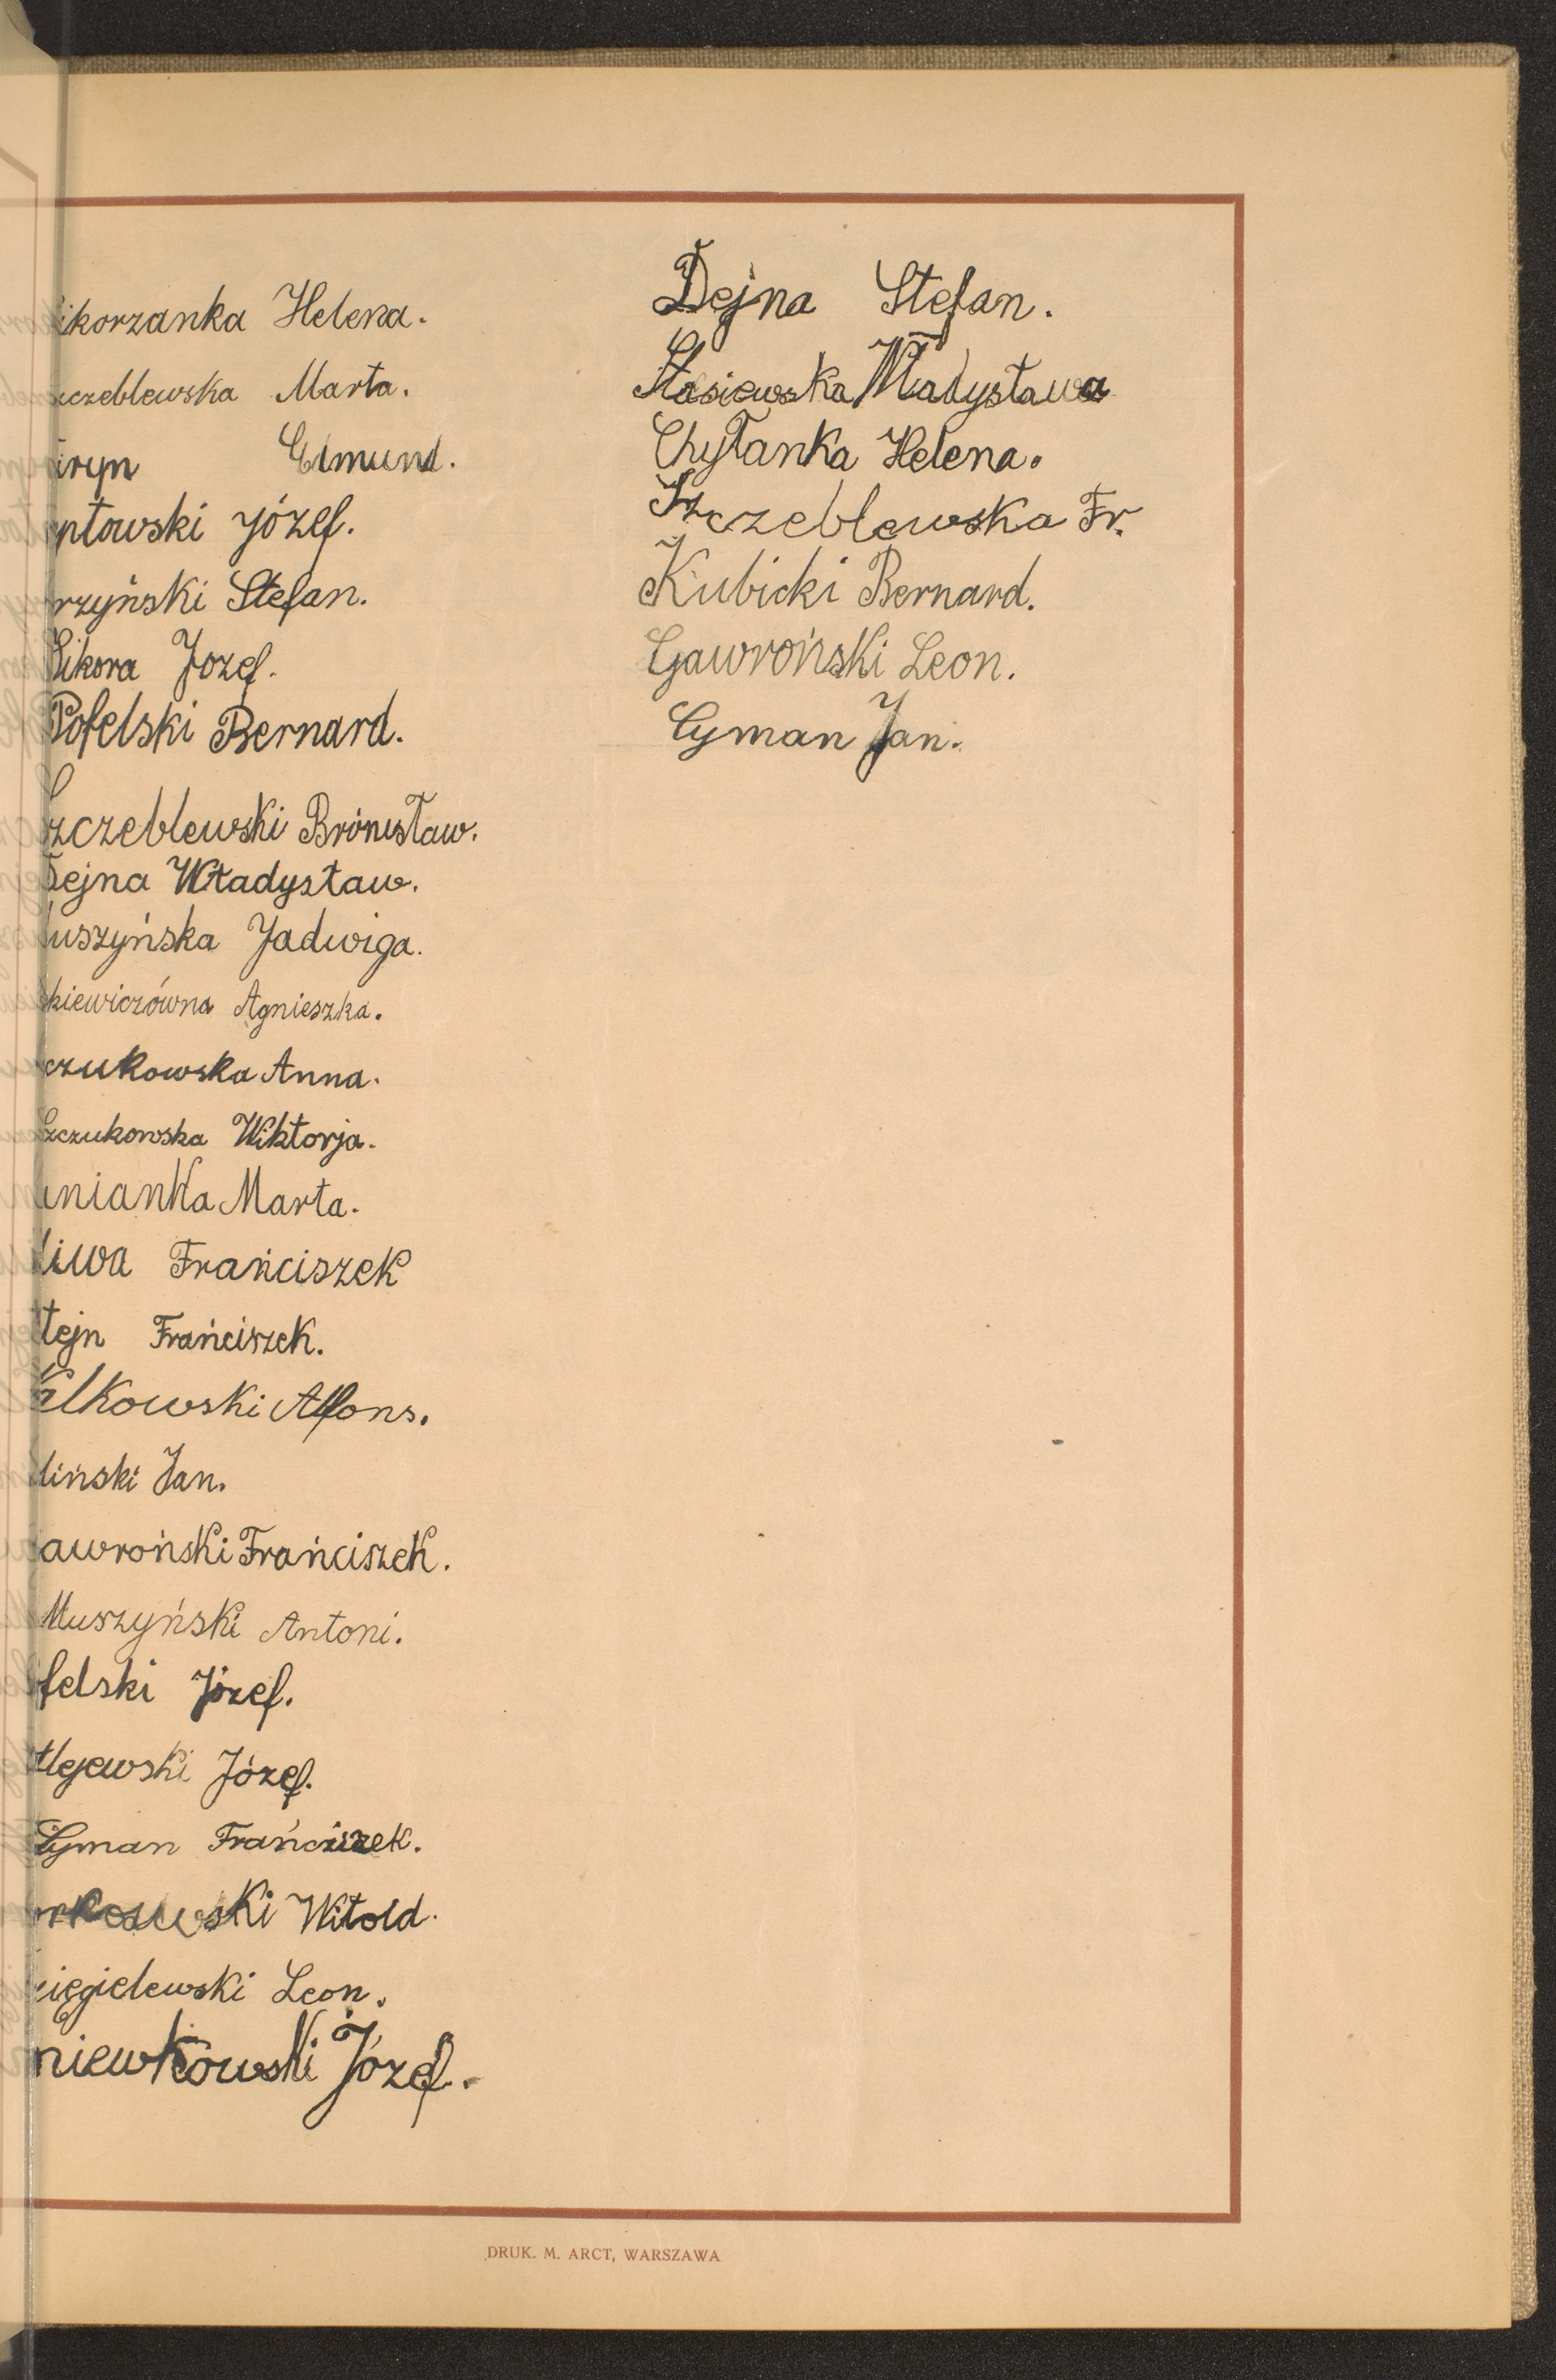 ikorzanka Helena.
zczeblewska Marta.
iryn Edmund.
ptowski Józef.
rzyński Stefan.
Sikora Jozef.
Pofelski Bernard.
Szczeblewski Brónisław.
Dejna Władysław.
uszyńska Jadwiga.
kiewiczówna Agnieszka.
czukowska Anna.
Szczukowska Wiktorja.
unianka Marta.
liwa Frańciszek
tejn Frańciszek.
alkowski Alfons.
liński Jan.
awroński Frańciszek.
Muszyński Antoni.
felski Józef.
tlejewski Józef.
Cyman Frańciszek.
rkowski Witold.
ięgielewski Leon.
niewkowski Józef.
Dejna Stefan.
Stasiewska Władysława
Chyłanka Helena.
Szczeblewska Fr.
Kubicki Bernard.
Gawroński Leon.
Cyman Jan.
DRUK. M. ARCT, WARSZAWA